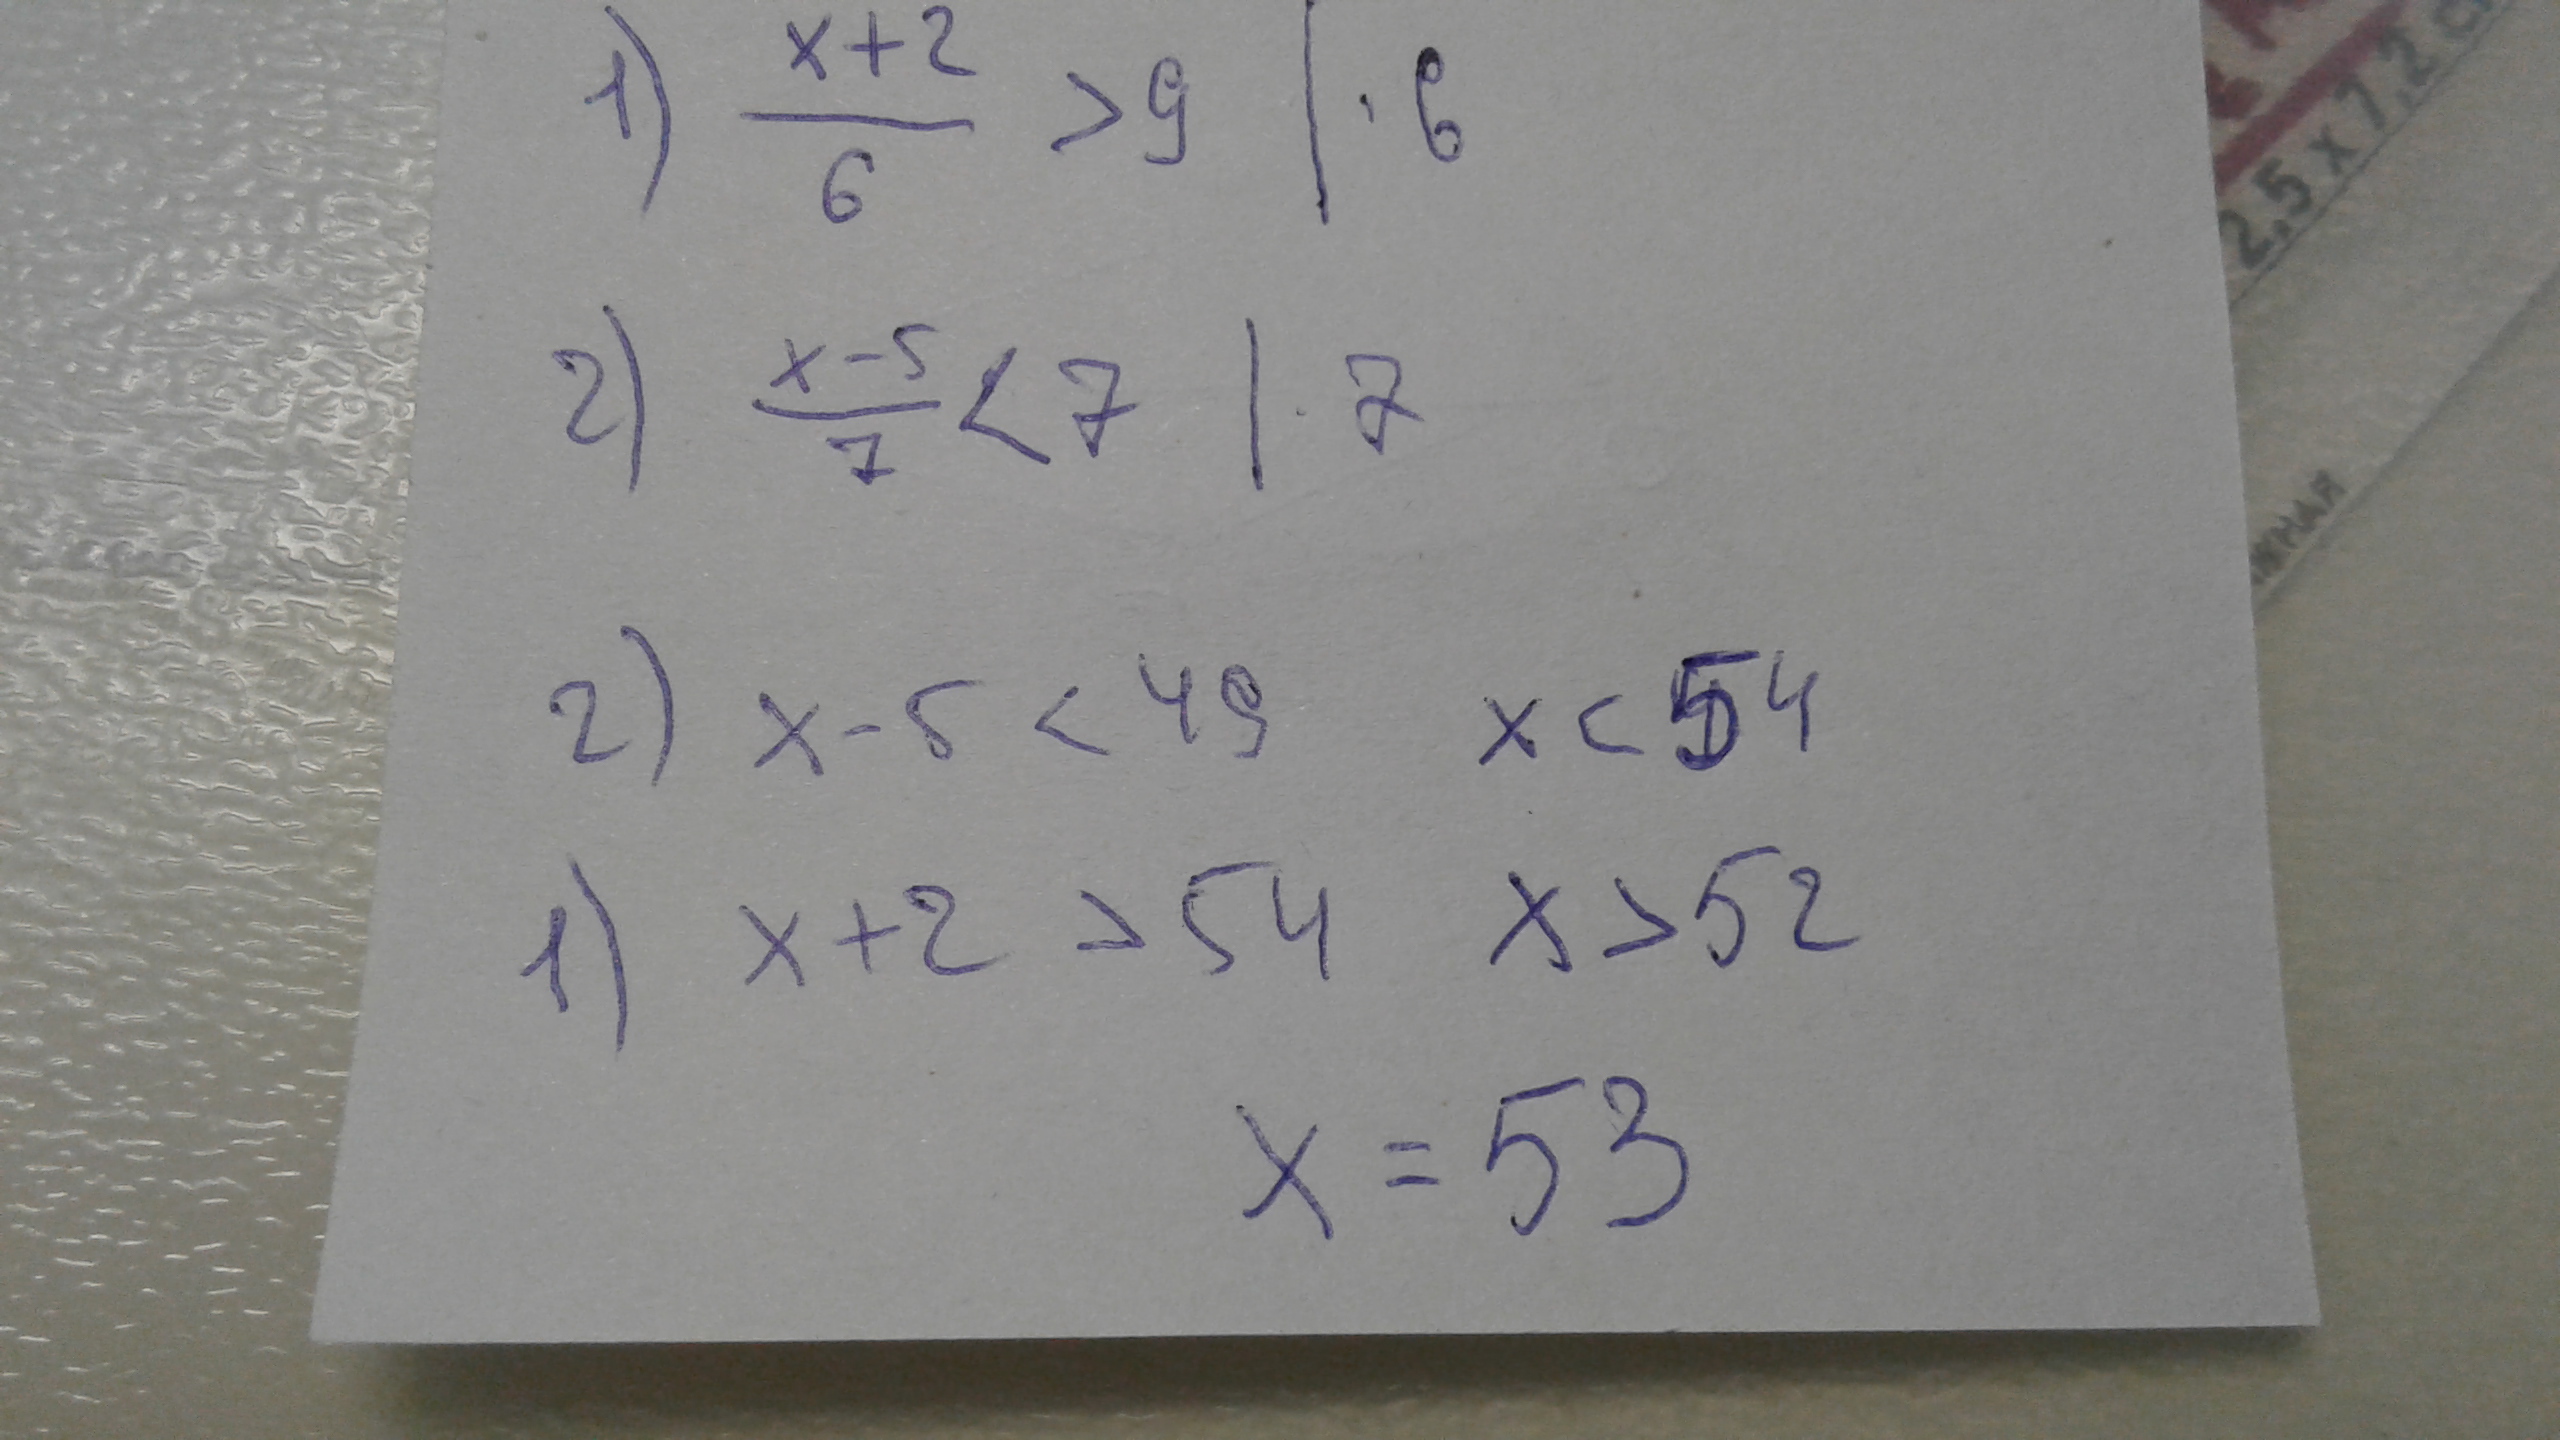 1) (x+2)/6 > 9 | · 6
2) (x-5)/7 < 7 | · 7
2) x-5 < 49 x < 54
1) x+2 > 54 x > 52
x = 53
2,5 x 7,2